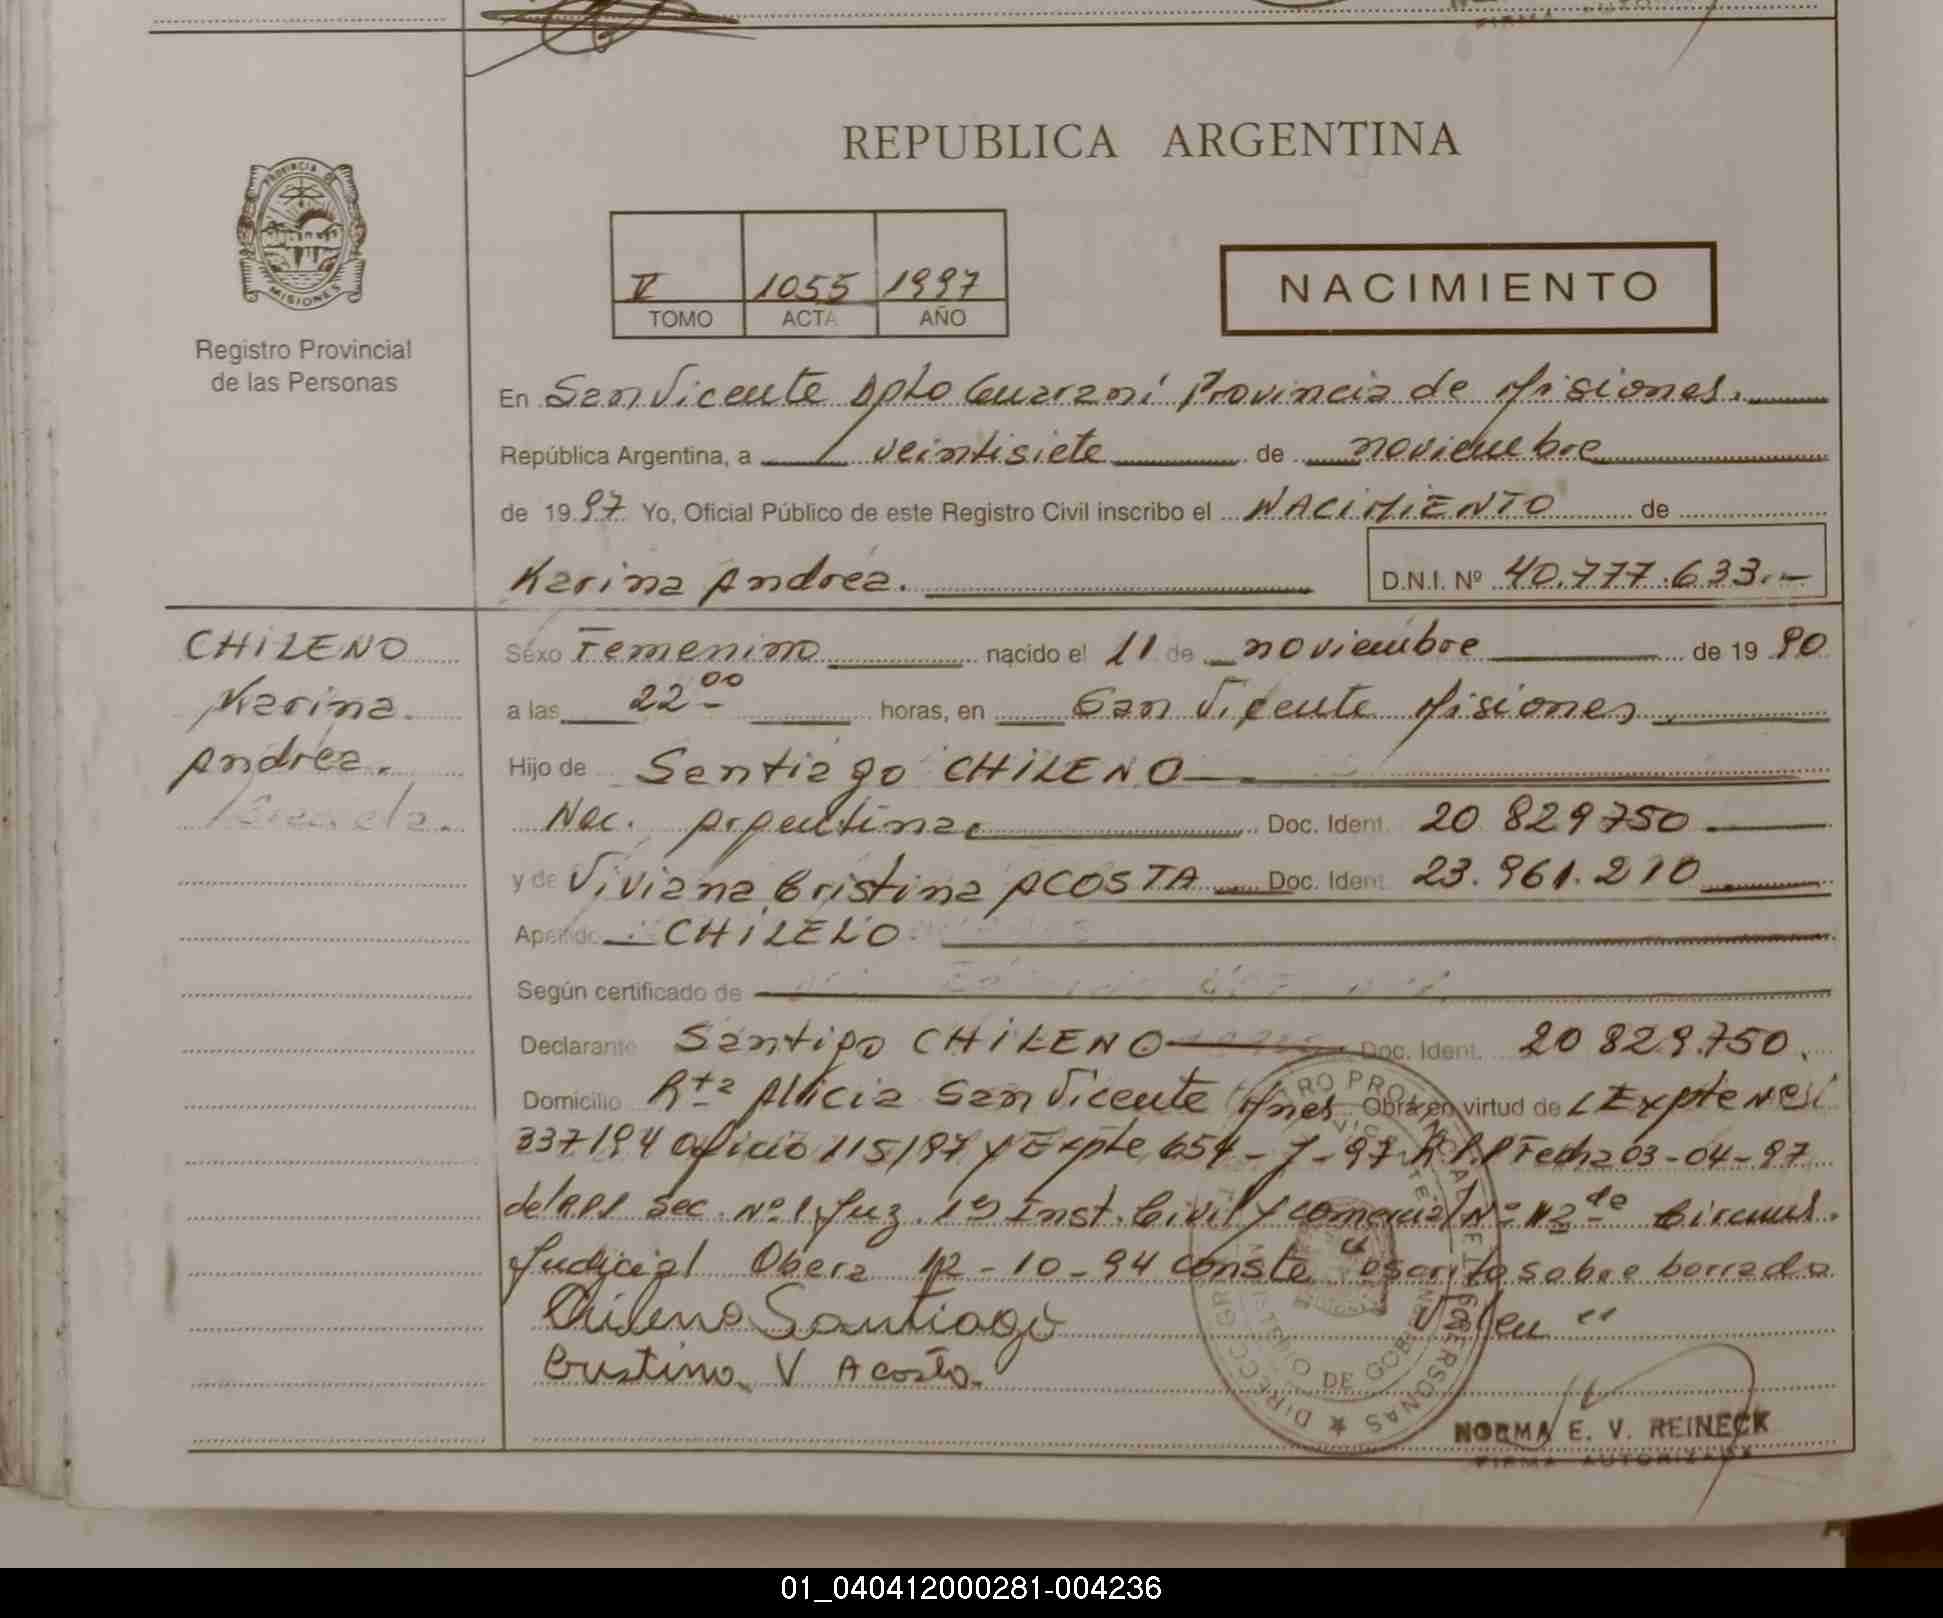 REPUBLICA ARGENTINA
PROVINCIA DE
MISIONES
Registro Provincial
de las Personas
V 1055 1997
TOMO ACTA AÑO
NACIMIENTO
En San Vicente Dpto Guaraní Provincia de Misiones.
República Argentina, a veintisiete de noviembre
de 1997 Yo, Oficial Público de este Registro Civil inscribo el NACIMIENTO de
Karina Andrea. D.N.I. Nº 40.777.633.-
CHILENO
Karina
Andrea.
Sexo Femenino nacido el 11 de noviembre de 1990
a las 22 00 horas, en San Vicente Misiones
Hijo de Santiago CHILENO
Nac. Argentina. Doc. Ident. 20 829750
y de Viviana Cristina ACOSTA Doc. Ident. 23.961.210
Apellido CHILELO
Según certificado de
Declarante Santigo CHILENO Doc. Ident. 20 829.750.
Domicilio Rta Alicia San Vicente Mnes Obra en virtud de Expte
337194 oficio 115/97 y Expte 654-7-97 Fecha 03-04-97
Sec. Nº1 Juz. 1º Inst. Civil y Comercial Nº 2da Circuns.
Judicial Obera 12-10-94 Conste escrito sobre borrado
Valeu "
Chileno Santiago
Cristina V Acosta.
NORMA E. V. REINECK
FIRMA AUTORIZADA
01_040412000281-004236